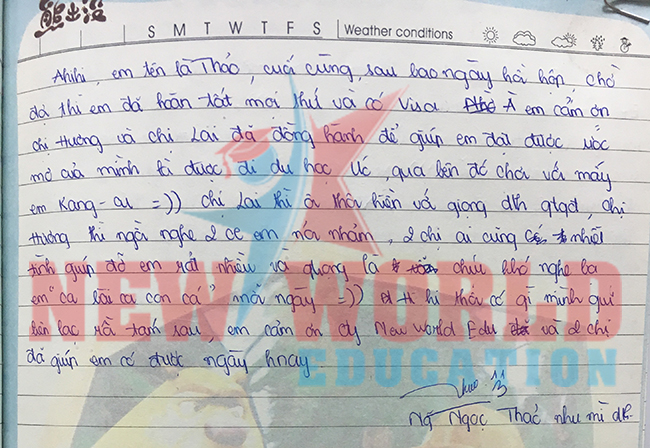 熊出没
S M T W T F S Weather conditions
Ahihi, em tên là Thảo, cuối cùng, sau bao ngày hồi hộp, chờ
đợi thì em đã hoàn tất mọi thứ và có Visa. À em cảm ơn
chị Hương và chị Lai đã đồng hành để giúp em đạt được ước
mơ của mình là được đi du học Úc, qua bên đó chơi với mấy
em Kang-cu =)) chị Lai thì ôi thôi hiền với giọng dth qtqđ, chị
Hương thì ngồi nghe 2 ce em nói nhảm, 2 chị ai cũng nhiệt
tình giúp đỡ em rất nhiều và quan là chịu khó nghe ba
em "ca bài ca con cá" mỗi ngày =)) hi thôi có gì mình giữ
liên lạc rồi tám sau, em cảm ơn cty New World Edu và 2 chị
đã giúp em có được ngày hnay.
NEW WORLD
EDUCATION
Thảo 11/3
Ng Ngọc Thảo như mì dth.